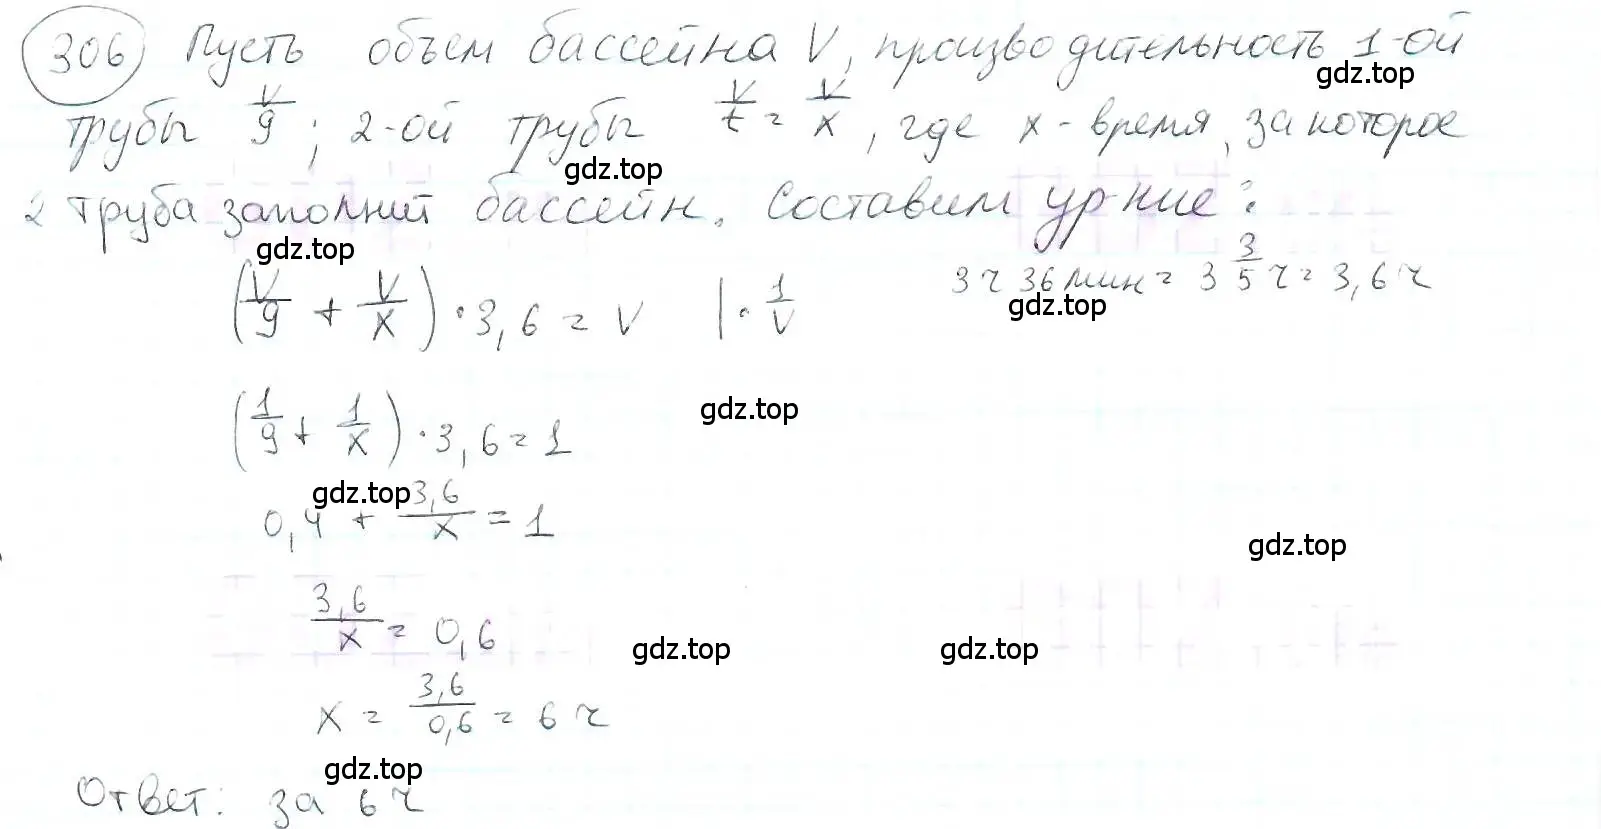 306 Пусть объем бассейна V, производительность 1-ой
gdz.top
трубы V/9; 2-ой трубы V/t = V/x, где x - время, за которое
gdz.top
2 труба заполнит бассейн. Составим ур-ние:
gdz.top
3 ч 36 мин = 3 3/5 ч = 3,6 ч
gdz.top
(V/9 + V/x) · 3,6 = V | · 1/V
gdz.top
(1/9 + 1/x) · 3,6 = 1
gdz.top
0,4 + 3,6/x = 1
gdz.top
3,6/x = 0,6
gdz.top gdz.top
x = 3,6/0,6 = 6 ч
gdz.top
Ответ: за 6 ч